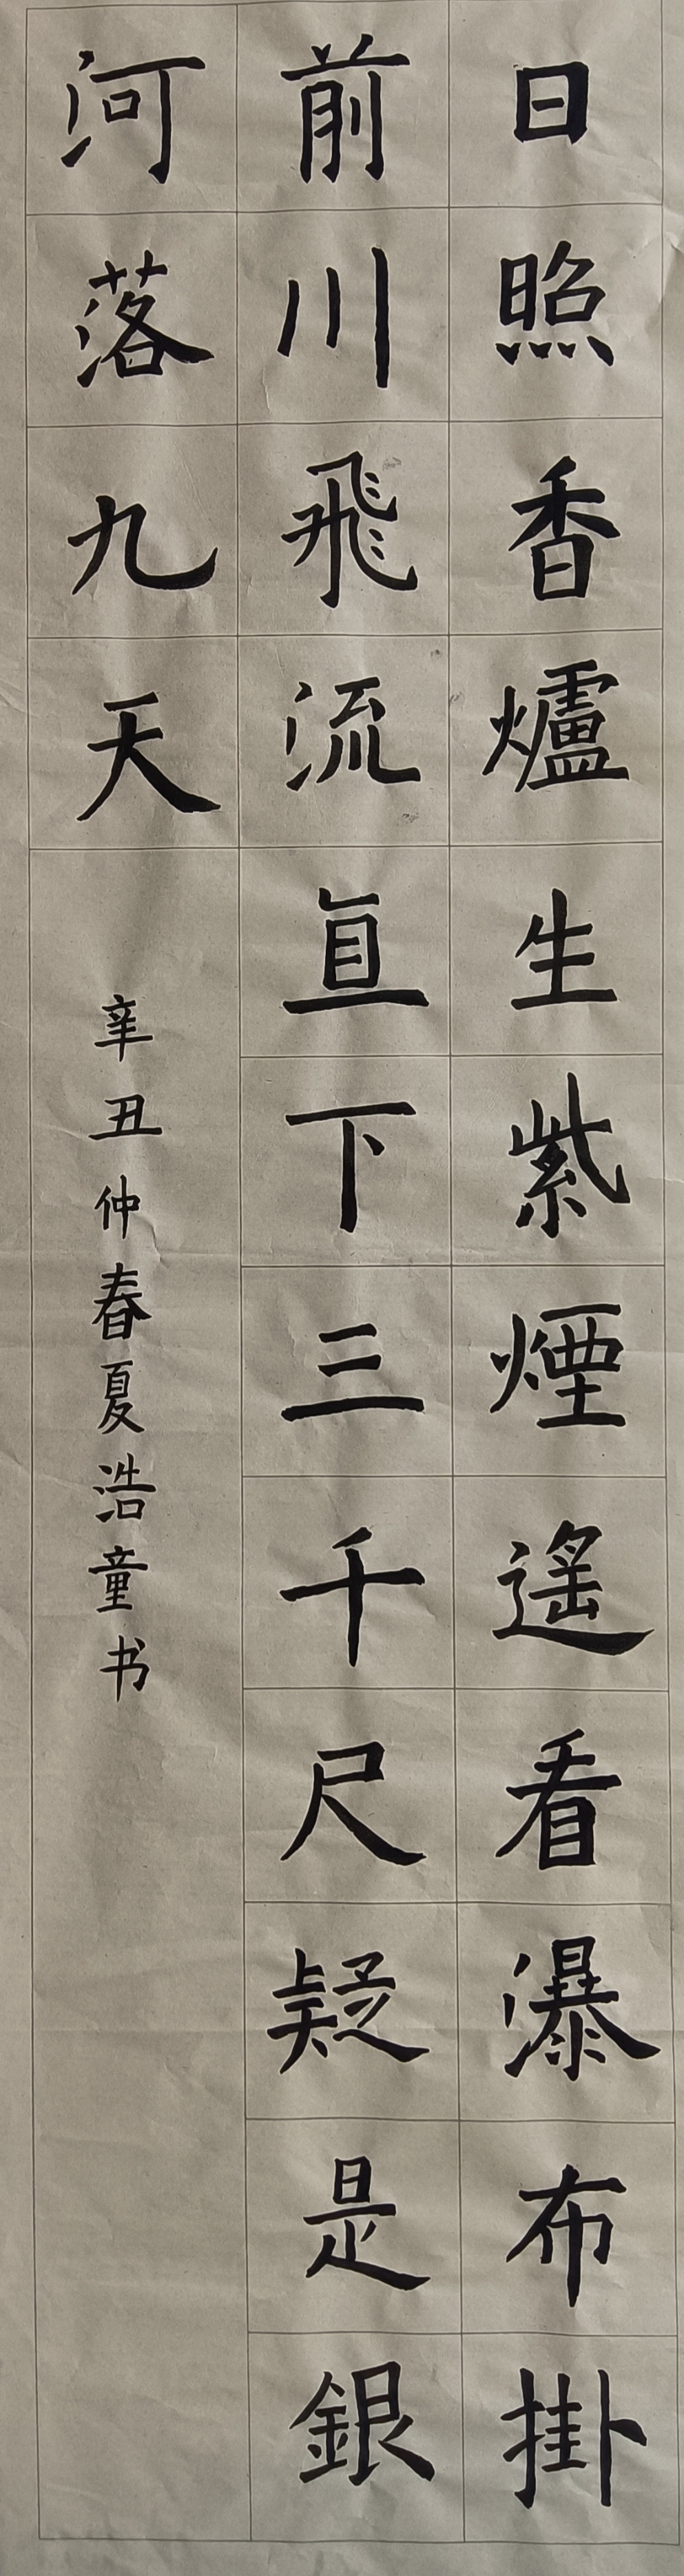 日照香爐生紫煙遙看瀑布掛
前川飛流直下三千尺疑是銀
河落九天
辛丑仲春夏浩童书